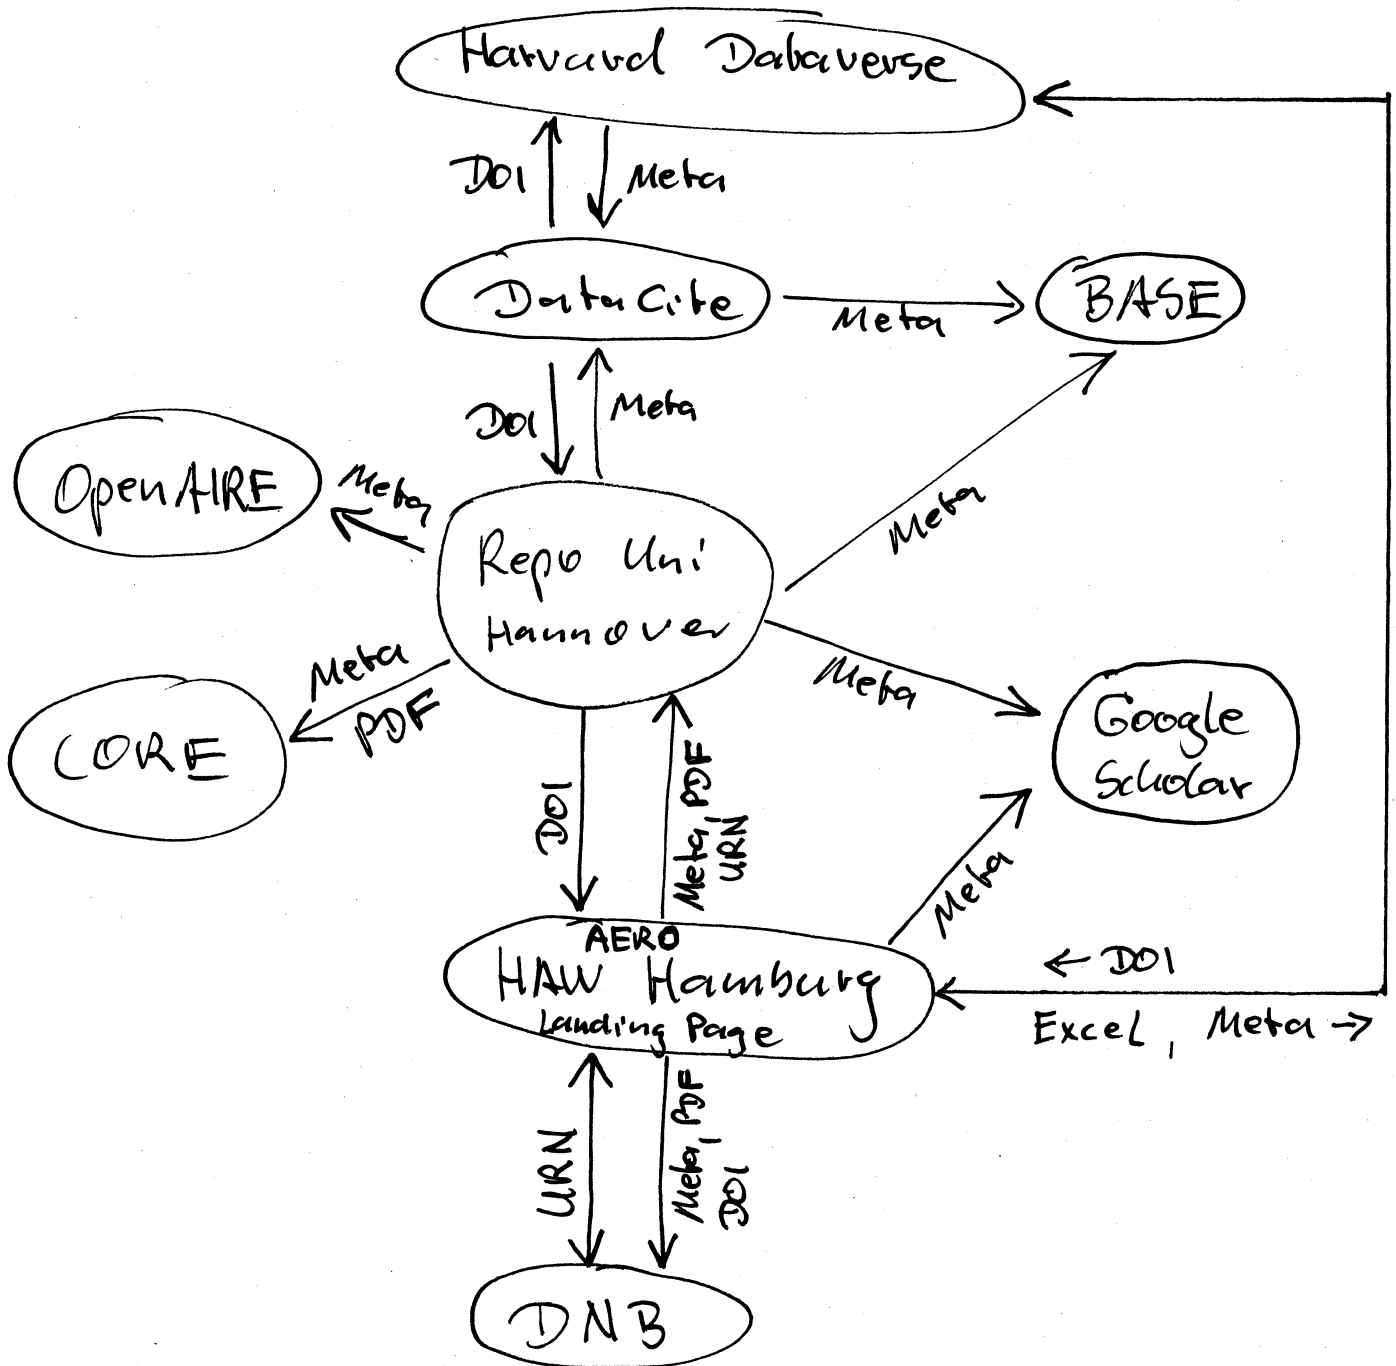 Harvard Dataverse
DOI
Meta
DataCite
Meta
BASE
DOI
Meta
OpenAIRE
Meta
Repo Uni
Hannover
Meta
Meta
PDF
CORE
Meta
Google
Scholar
DOI
Meta, PDF
URN
Meta
AERO
HAW Hamburg
Landing Page
← DOI
Excel, Meta →
URN
Meta, PDF
DOI
DNB